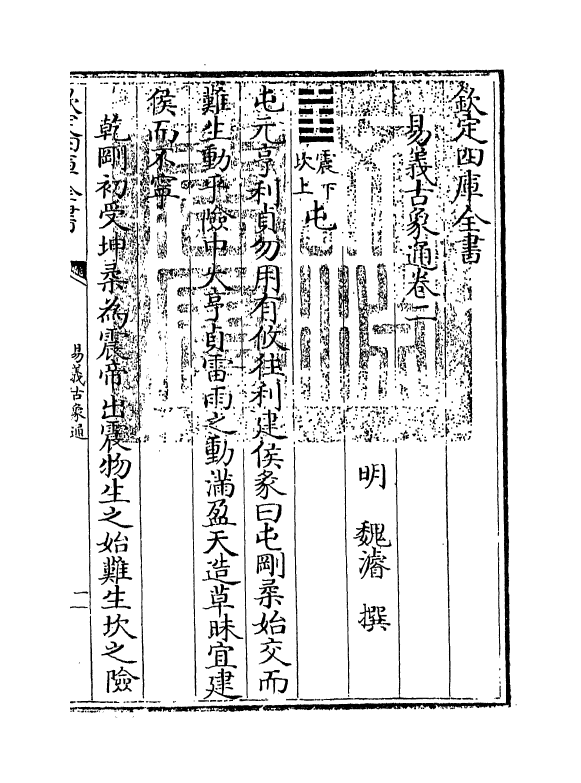 欽定四庫全書
易義古象通卷二
明　魏濬　撰
震下
坎上
屯
屯元亨利貞勿用有攸往利建侯彖曰屯剛柔始交而
難生動乎險中大亨貞雷雨之動滿盈天造草昧宜建
侯而不寧
乾剛初受坤柔為震帝出震物生之始難生坎之險
欽定四庫全書
易義古象通